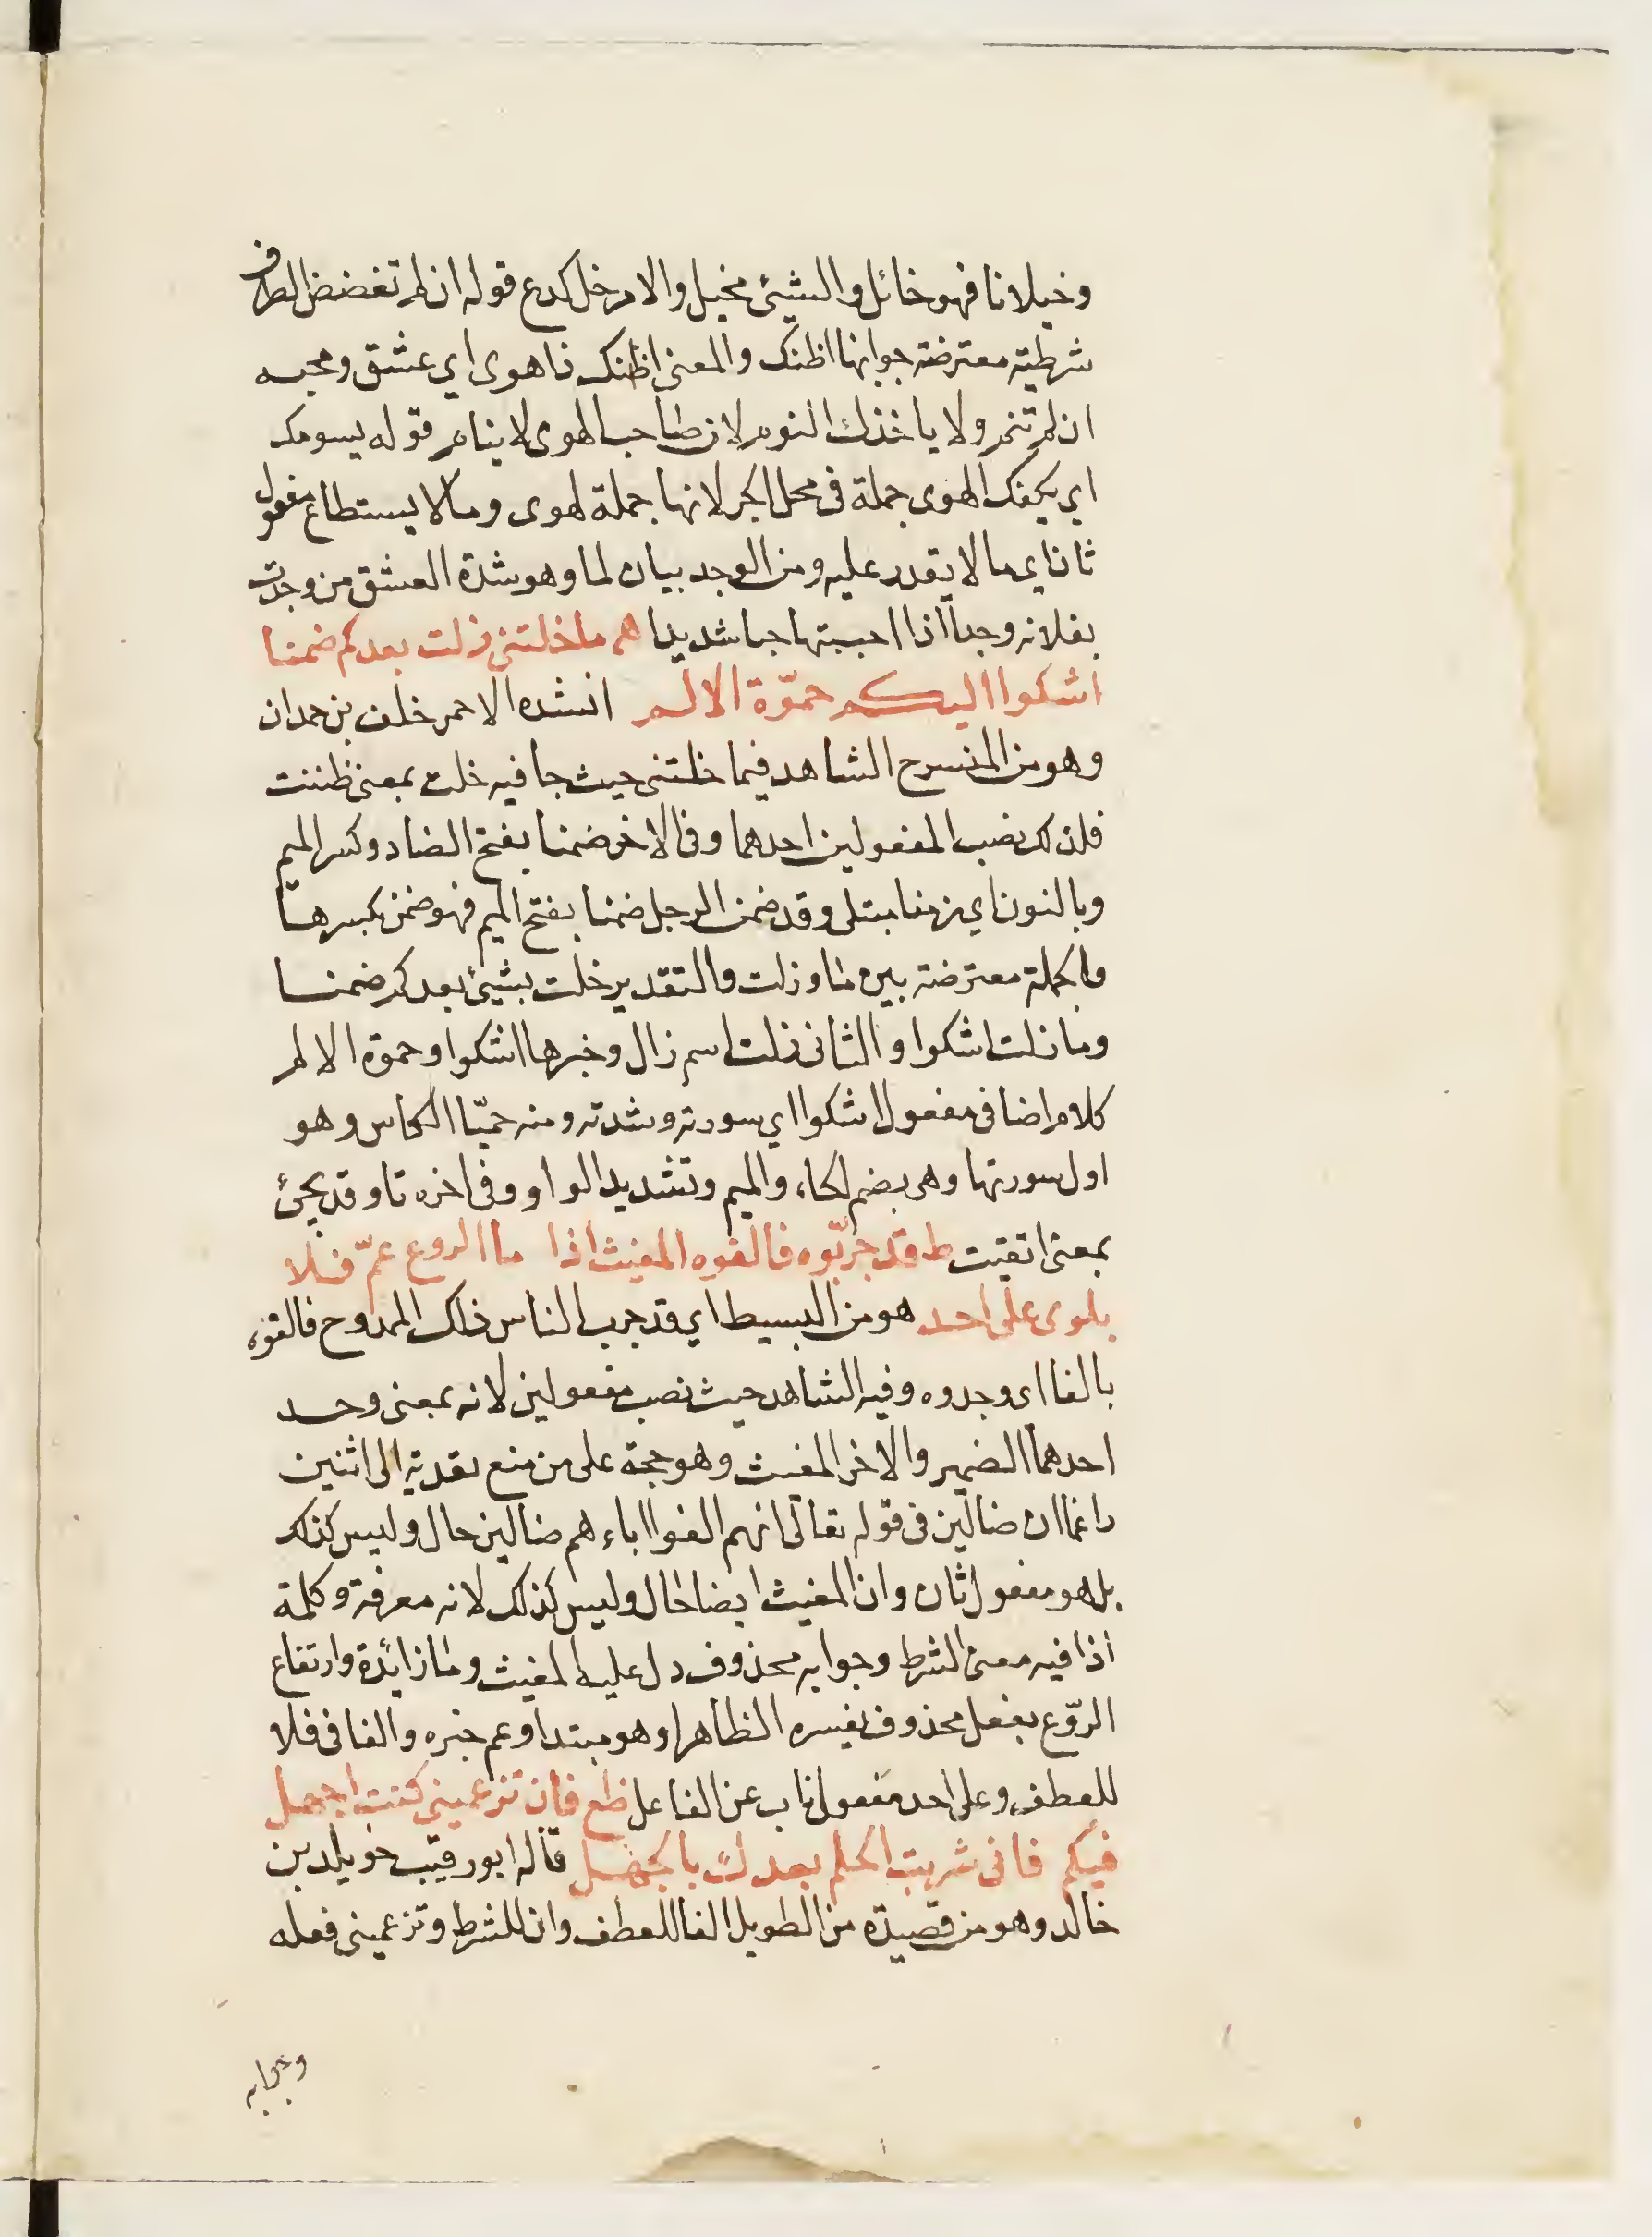 وخيلانا فهو خائل والشيئ مخيل والامر خل كدع قوله ان لم تغضض الطرف
شرطية معترضة جوابها اظنك والمعنى اظنك ذاهوى اي عشق ومحبه
ان لم تنم ولا ياخذك النوم لان صاحب الهوى لا ينام قوله يسومك
اي يكلفك الهوى جملة فى محل الجر لانها جملة لهوى وما لا يستطاع مفعول
ثان اي ما لا يقدر عليه ومن الوجد بيان لما وهو شدة العشق من وجدت
بفلانه وجدا اذا احببتها حبا شديدا هم ما خلتنى زلت بعدكم ضمنا
اشكوا اليكم حموّة الالم انشده الاحمر خلف بن حمدان
وهو من المنسرح الشاهد فيما خلتنى حيث جا فيه خلت بمعنى ظننت
فلذلك نصب المفعولين احدهما وفى الاخر ضمنا بفتح الضاد وكسر الميم
وبالنون اي زمنا مبتلى وقد ضمن الرجل ضمنا بفتح الميم فهو ضمن بكسرها
والجملة معترضة بين ما وزلت والتقدير خلت بشيئ بعدكم ضمنا
وما زلت اشكوا والثانى زلت اسم زال وخبرها اشكوا وحموة الالم
كلام اضافى مفعول اشكوا اي سورته وشدته ومنه حميّا الكاس وهو
اول سورتها وهى بضم الحاء والميم وتشديد الواو وفى اخره تا وقد يجئ
بمعنى اتقيت ط قد جربّوه فالفوه المغيث اذا ما الروع عمّ فلا
يلوى على احد هو من البسيط اي قد جرب الناس ذلك الممدوح فالفوه
بالفا اى وجدوه وفيه الشاهد حيث نصب مفعولين لانه بمعنى وجد
احدهما الضمير والاخر المغيث وهو حجة على من منع تعديه الى اثنين
زاعما ان ضالين فى قوله تعالى انهم الفوا اباءهم ضالين حال وليس كذلك
بل هو مفعول ثان وان المغيث ايضا حال وليس كذلك لانه معرفة وكلمة
اذا فيه معنى الشرط وجوابه محذوف دل عليه المغيث وما زايدة وارتفاع
الروّع بفعل محذوف يفسره الظاهر او هو مبتدا وعم خبره والفا فى فلا
للعطف وعلى احد مفعول ناب عن الفاعل ظع فان تزعمينى كنت اجهل
فيكم فانى شريت الحلم بعدك بالجهل قاله ابو رقيب خويلد بن
خالد وهو من قصيدة من الطويل الفا للعطف وان للشرط وتزعمينى فعله
وجوابه